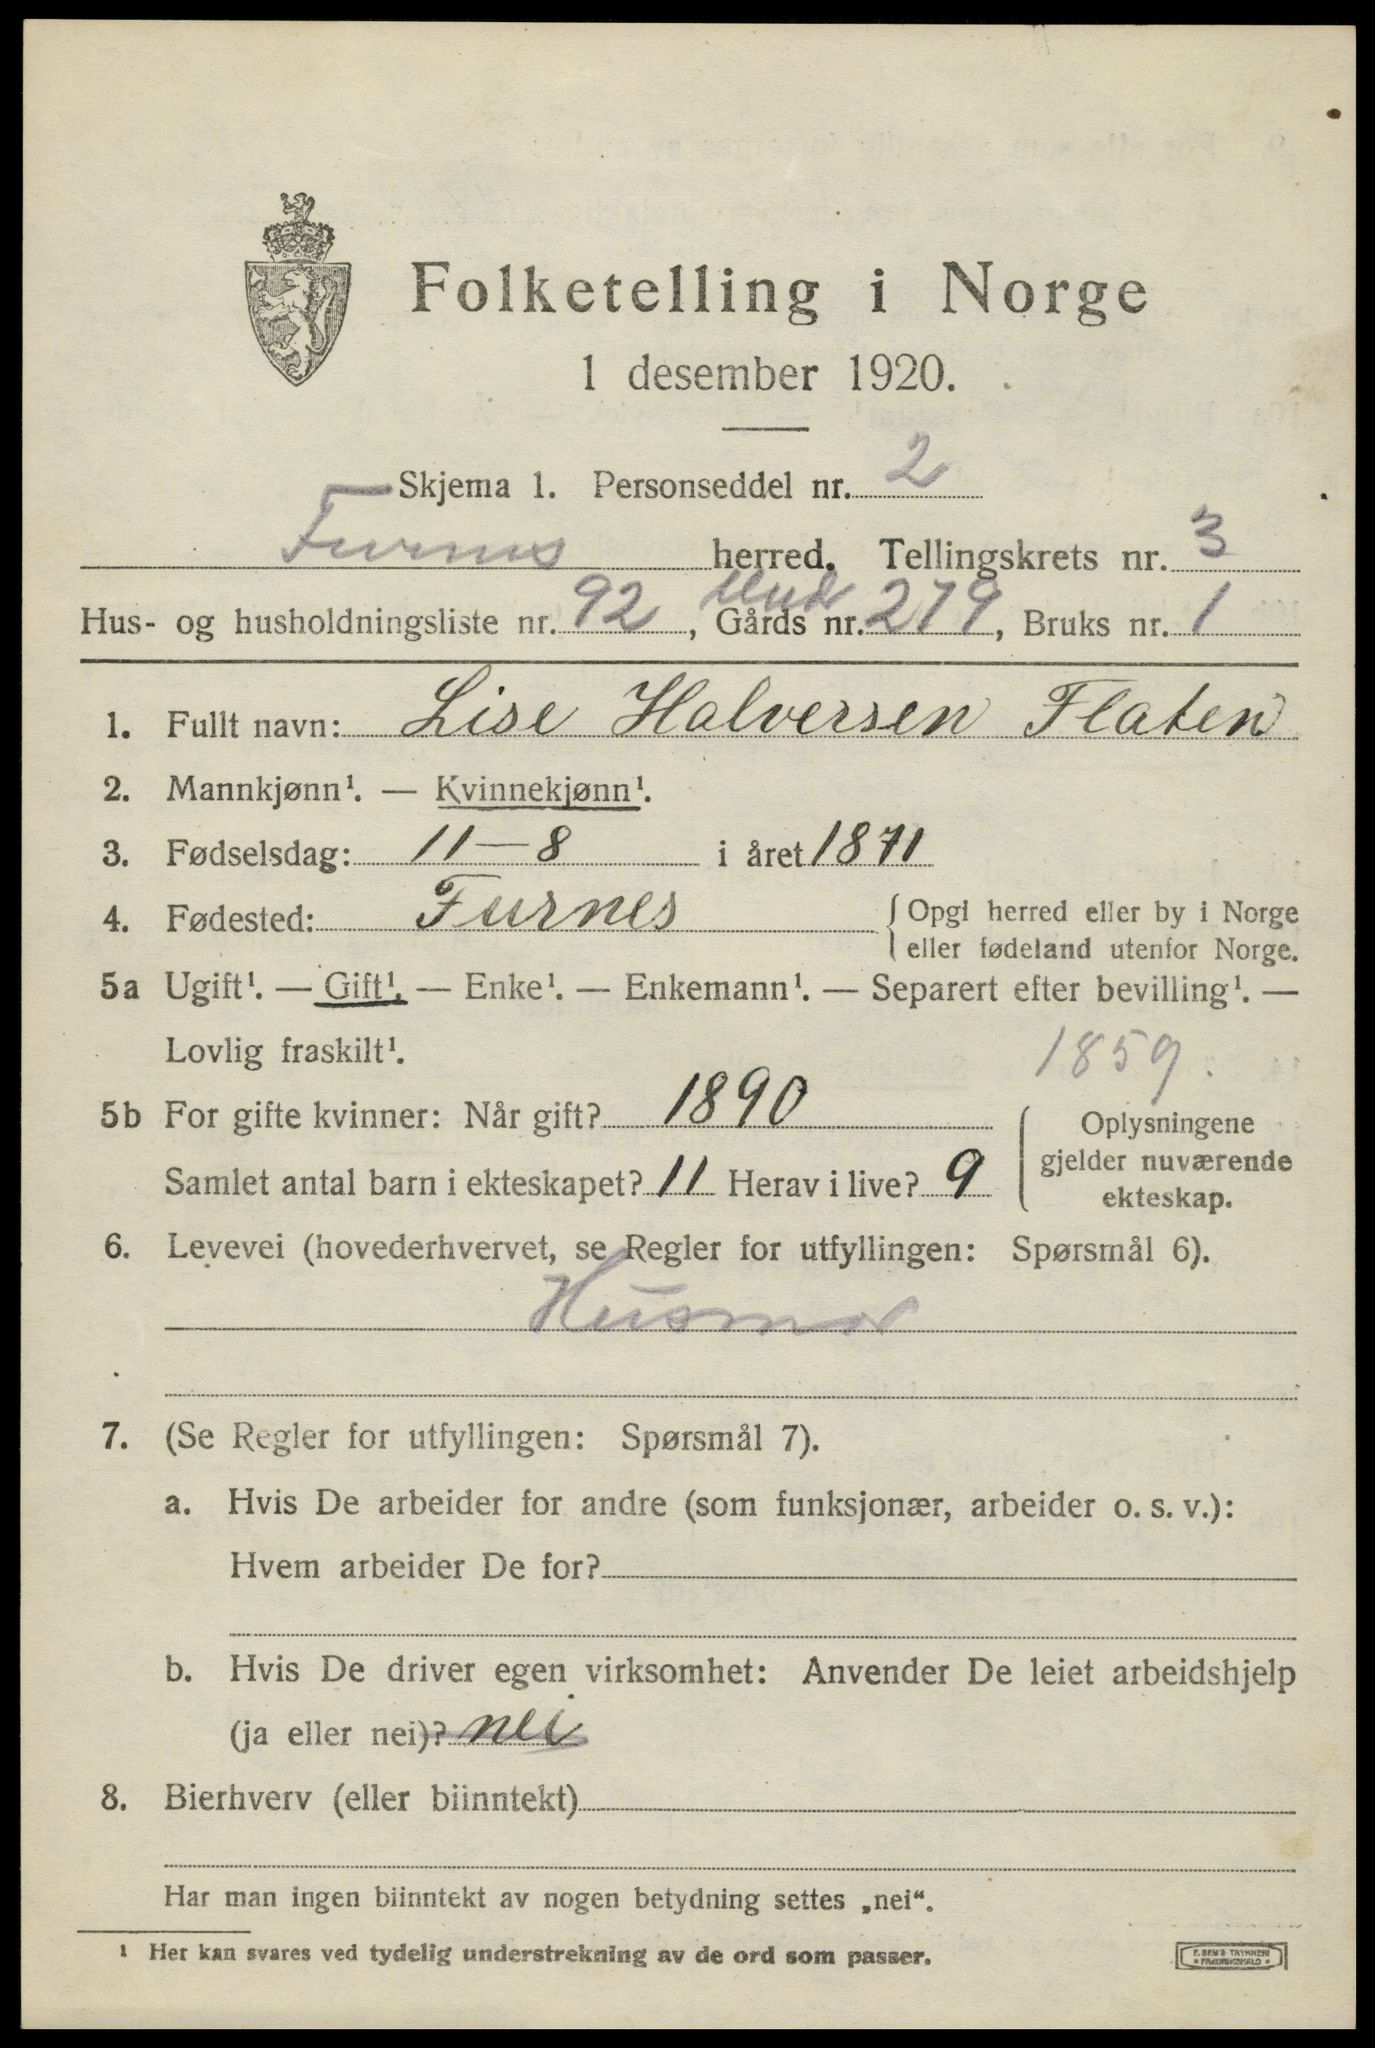 Folketelling i Norge
1 desember 1920.
Skjema 1. Personseddel nr. 2
Furnes herred. Tellingskrets nr. 3
Hus- og husholdningsliste nr. 92, Gårds nr. 279, Bruks nr. 1
1. Fullt navn: Lise Halversen Flaten
2. Mannkjønn¹. — Kvinnekjønn¹.
3. Fødselsdag: 11–8 i året 1871
4. Fødested: Furnes {Opgi herred eller by i Norge
eller fødeland utenfor Norge.
5a Ugift¹. — Gift¹. — Enke¹. — Enkemann¹. — Separert efter bevilling¹. —
Lovlig fraskilt¹.
1859.
5b For gifte kvinner: Når gift? 1890
Samlet antal barn i ekteskapet? 11 Herav i live? 9
Oplysningene
gjelder nuværende
ekteskap.
6. Levevei (hovederhvervet, se Regler for utfyllingen: Spørsmål 6).
Husmor
7. (Se Regler for utfyllingen: Spørsmål 7).
a. Hvis De arbeider for andre (som funksjonær, arbeider o. s. v.):
Hvem arbeider De for?
b. Hvis De driver egen virksomhet: Anvender De leiet arbeidshjelp
(ja eller nei)? nei
8. Bierhverv (eller biinntekt)
Har man ingen biinntekt av nogen betydning settes „nei“.
¹ Her kan svares ved tydelig understrekning av de ord som passer.
E. SEM'S TRYKKERI
FREDRIKSHALD